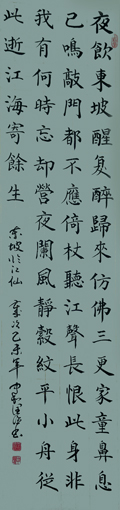 夜飲東坡醒复醉歸來仿佛三更家童鼻息
已鳴敲門都不應倚杖聽江聲長恨此身非
我有何時忘却營夜闌風靜縠紋平小舟從
此逝江海寄餘生 乙未年